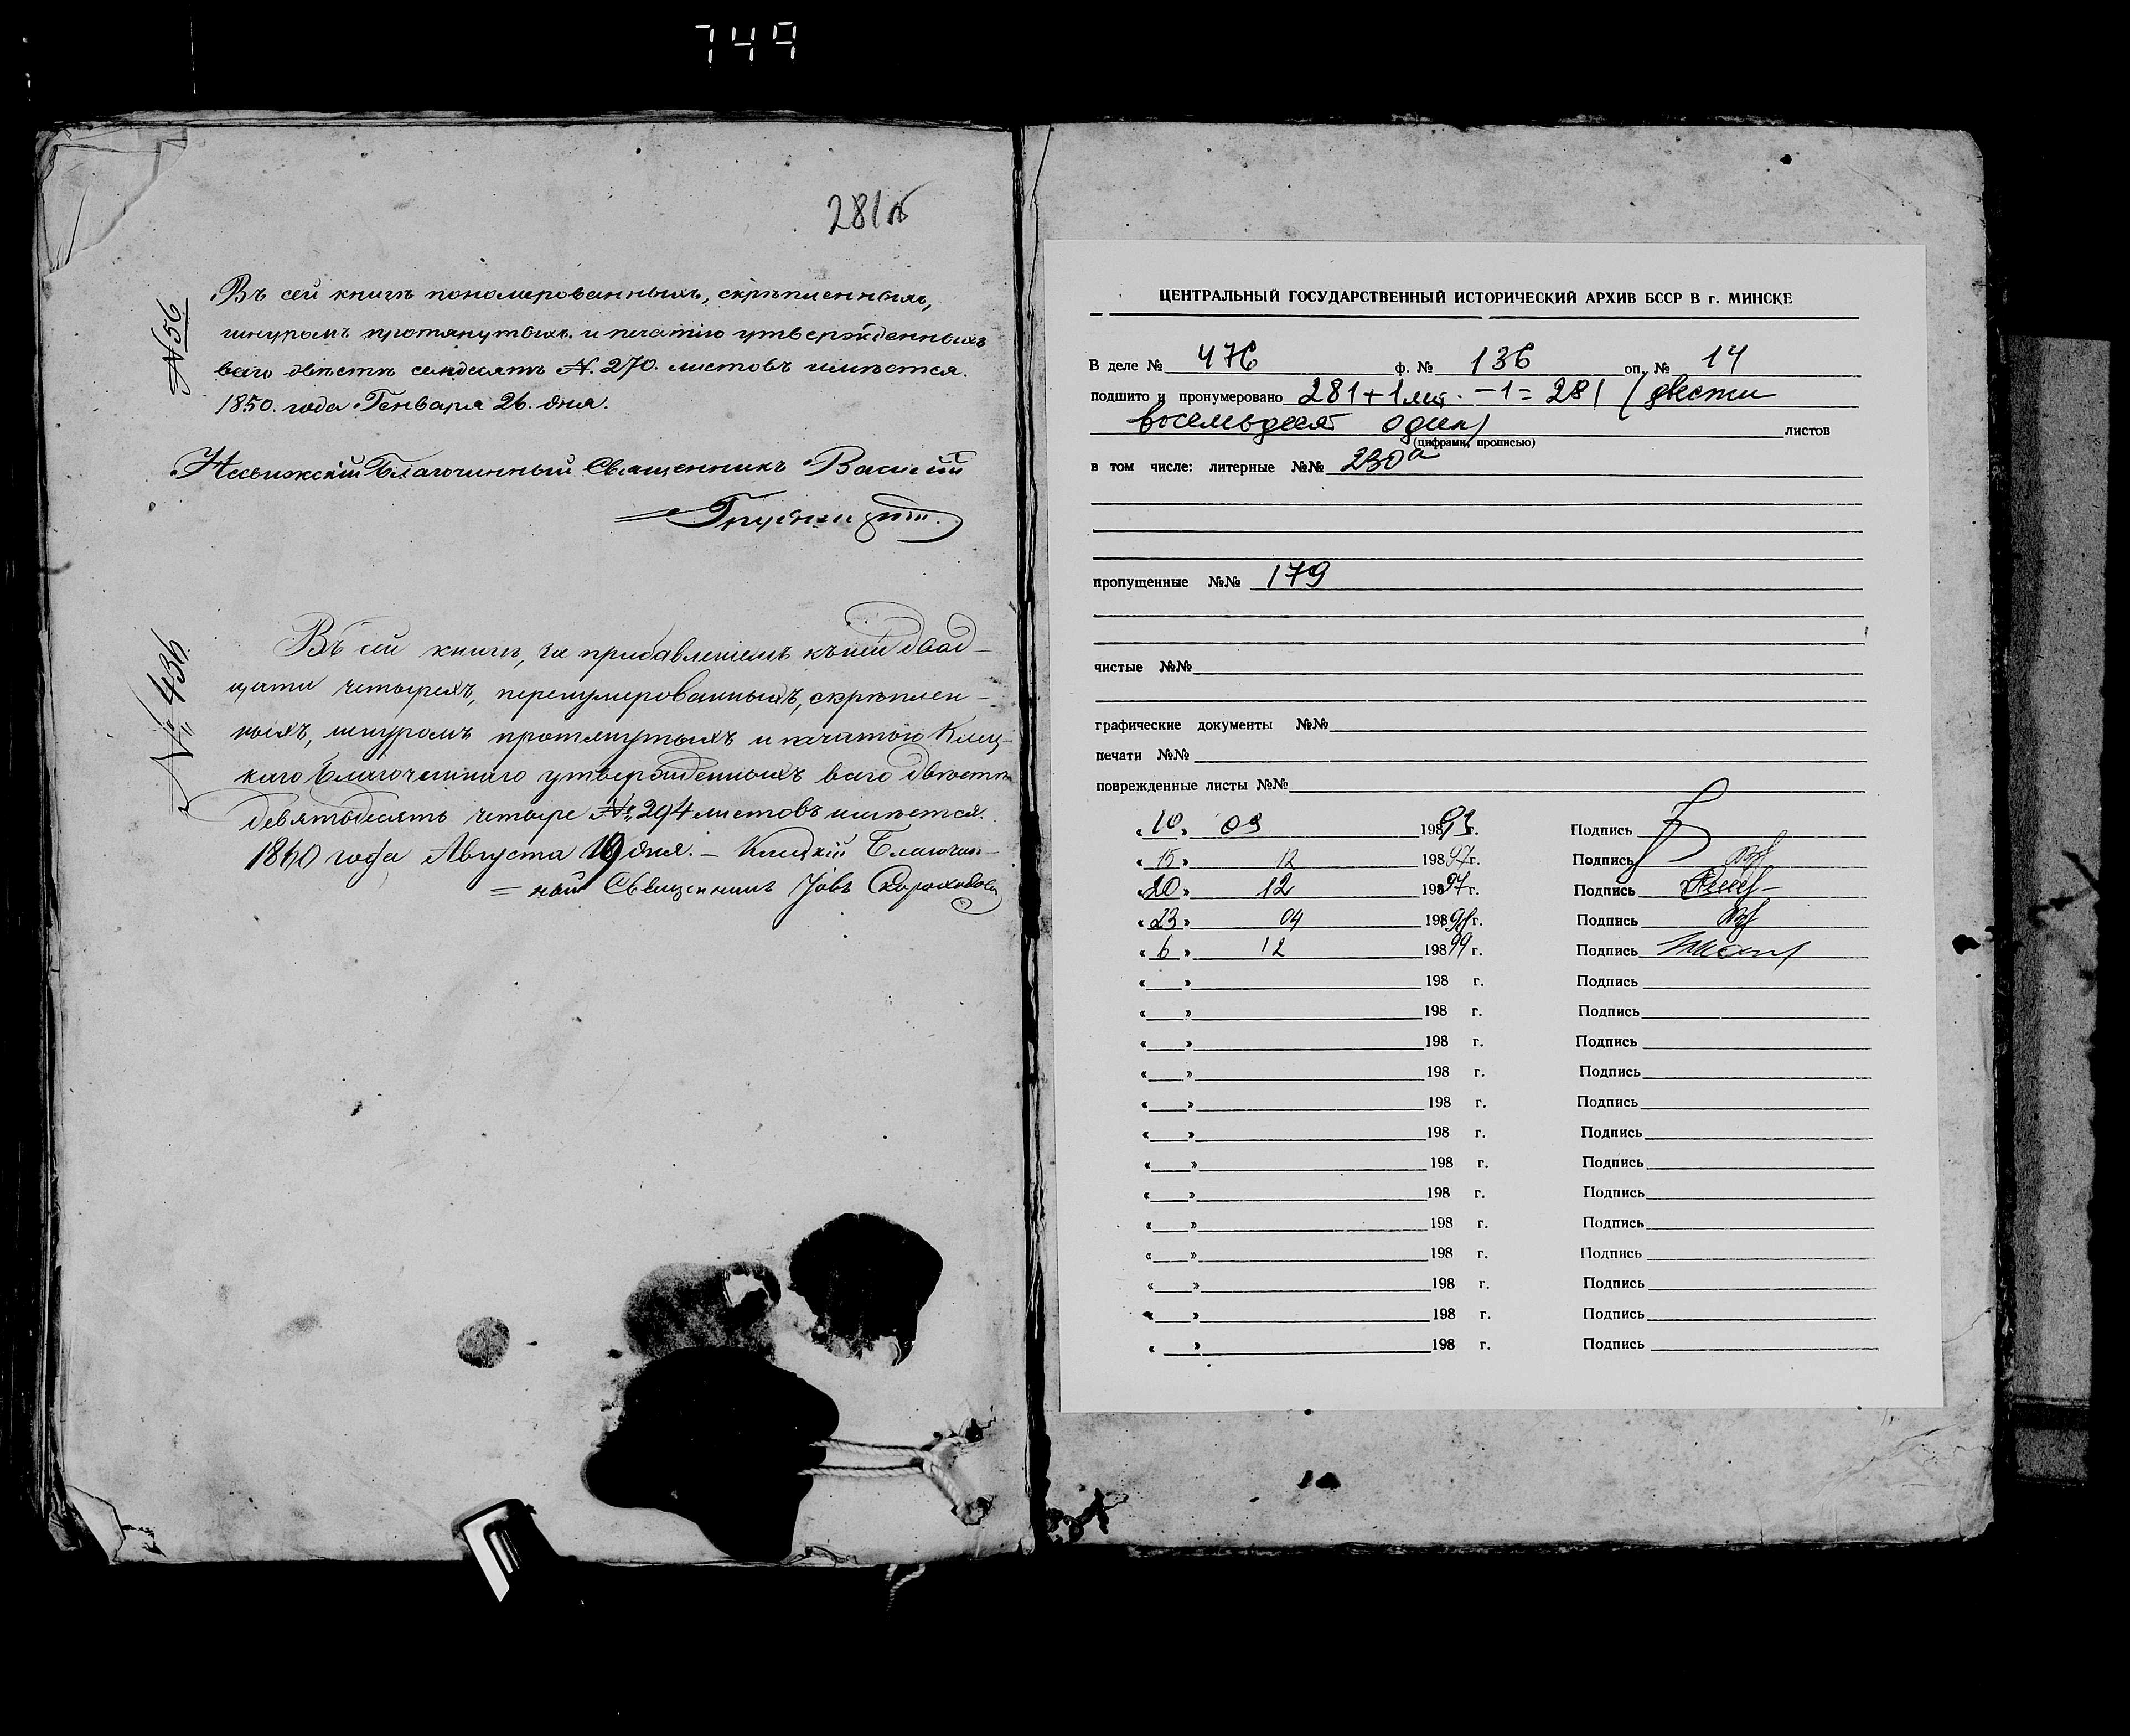 749
281
№ 56
Въ сей книгѣ пономерованныхъ, скрѣпленныхъ,
шнуромъ протянутыхъ и печатію утвержденныхъ
всего двѣстѣ семдесятъ №. 270. листовъ имѣется.
1850. года Генваря 26. дня.
Несвижскій Благочинный Священникъ Василій
№ 436
Въ сей книгѣ, за прибавленіемъ къ ней двад-
цати четырехъ, перенумерованныхъ, скрѣплен-
ныхъ, шнуромъ протянутыхъ и печатью Клец-
каго Благочиннаго утвержденныхъ всего двѣсти
девятьдесятъ четыре № 294 листовъ имѣется.
1860 года Августа 19 дня. – Клецкій Благочин-
= ный Священникъ Іовъ Скороходовъ
ЦЕНТРАЛЬНЫЙ ГОСУДАРСТВЕННЫЙ ИСТОРИЧЕСКИЙ АРХИВ БССР В г. МИНСКЕ
В деле № 476 ф. № 136 оп. № 14
подшито и пронумеровано 281+1лит. -1= 281 (двести
восемьдесят один) листов
(цифрами, прописью)
в том числе: литерные №№ 230а
пропущенные №№ 179
чистые №№
графические документы №№
печати №№
поврежденные листы №№
« 10 » 09 19893 г. Подпись
« 15 » 12 19897 г. Подпись
« 20 » 12 19897 г. Подпись
« 23 » 04 19898 г. Подпись
« 6 » 12 19899 г. Подпись
« » 198 г. Подпись
« » 198 г. Подпись
« » 198 г. Подпись
« » 198 г. Подпись
« » 198 г. Подпись
« » 198 г. Подпись
« » 198 г. Подпись
« » 198 г. Подпись
« » 198 г. Подпись
« » 198 г. Подпись
« » 198 г. Подпись
« » 198 г. Подпись
« » 198 г. Подпись